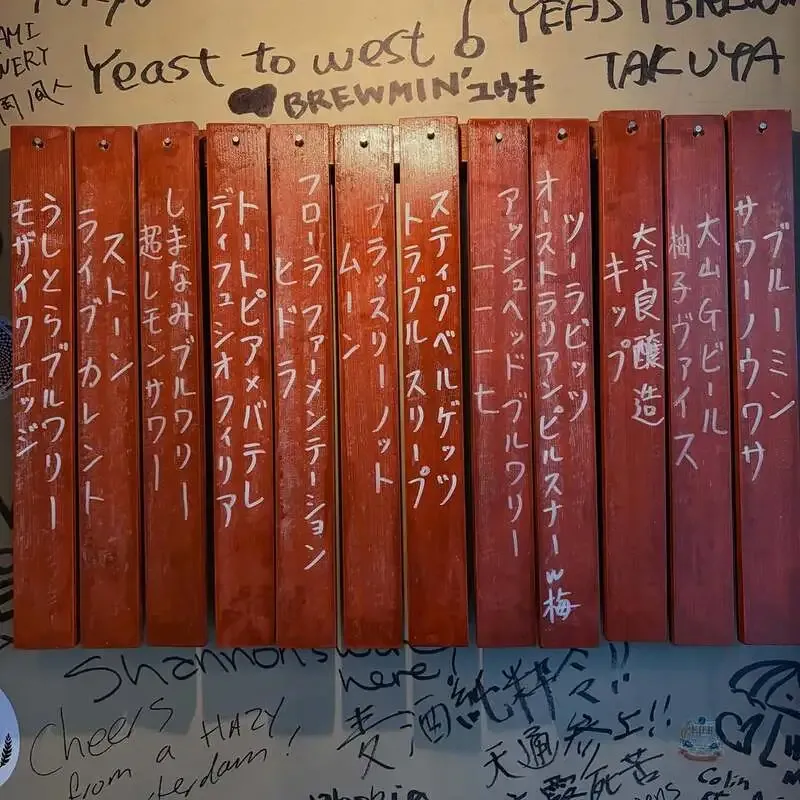 Yeast to west 6
YEAST BREW
TAKUYA
BREWMIN'ユウキ
ブルーミン
サワーノウワサ
大山Gビール
柚子ヴァイス
奈良醸造
キップ
ツーラビッツ
オーストラリアンピルスナーw梅
アッシュヘッドブルワリー
一一一七
スティグベルゲッツ
トラブル スリープ
ブラッスリーノット
ムーン
フローラ ファーメンテーション
ヒドラ
トートピア×バテレ
ディフュシオフィリア
しまなみブルワリー
超レモンサワー
ストーン
ライブカレント
うしとらブルワリー
モザイクエッジ
Shannon's was
here!
Cheers
from a HAZY
麦酒純粋令!!
天通参上!!
死苦
Colin